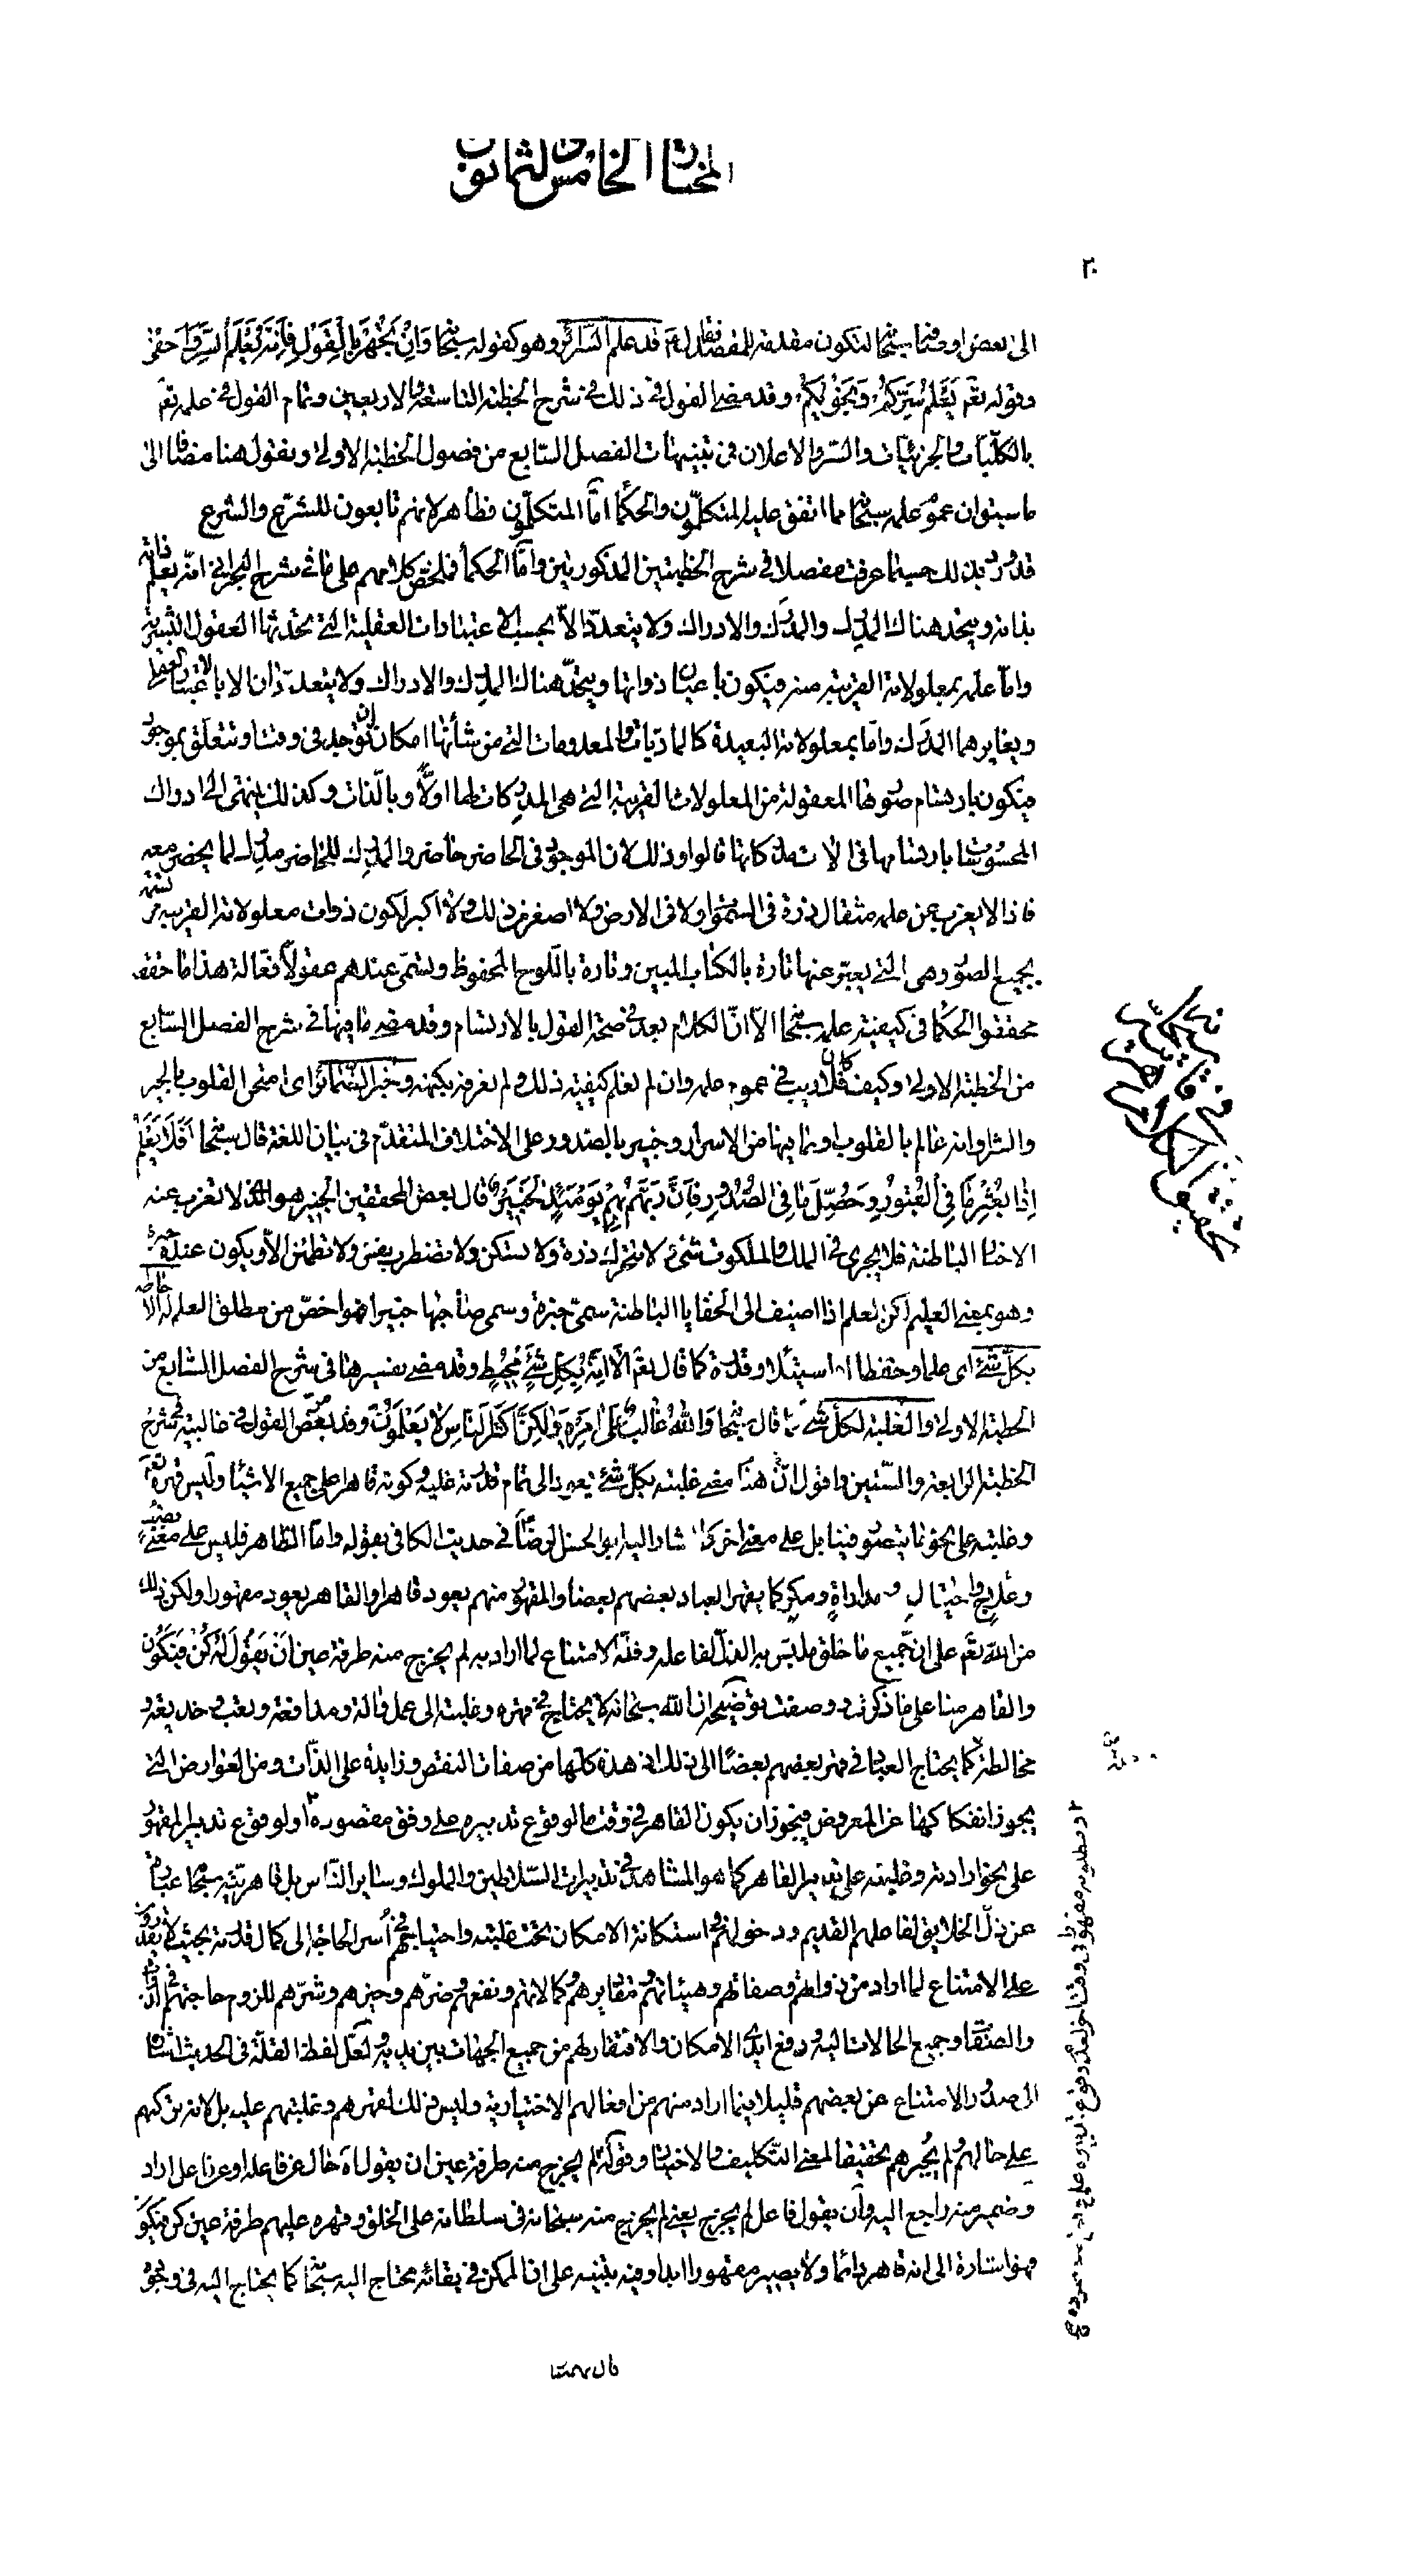 المختار الخامس والثمانون
٢٠
الى بعض اوصافه سبحانه لتكون مقدمة للمقصد فقال له قد علم السّرائر وهو كقوله سبحانه وَاِنْ تَجْهَرْ بِالْقَوْلِ فَاِنَّهُ يَعْلَمُ السِّرَّ وَاَخْفىٰ
وقوله تعم يَعْلَمُ سِرَّكُمْ وَجَهْرَكُمْ وقد مضى القول في ذلك في شرح الخطبة التاسعة والاربعين وتمام القول في علمه تعم
بالكلّيات والجزئيّات والسّر والاعلان في تنبيهات الفصل السّابع من فصول الخطبة الاولى ونقول هنا مضافا الى
ما سبق ان عموم علمه سبحانه مما اتفق عليه المتكلّمون والحكماء امّا المتكلّمون فظاهر لانهم تابعون للشرع والشرع
قد ورد بذلك حسبما عرفت مفصلا في شرح الخطبتين المذكورتين وامّا الحكماء فملخّص كلامهم على ما في شرح البحراني انّه يعلم ذاته
بذاته ويتّحد هناك المدرِك والمدرَك والادراك ولا يتعدّد الّا بحسب الاعتبارات العقلية التي تحدثها العقول البشرية
وامّا علمه بمعلولاته القريبة منه فيكون باعيان ذواتها ويتّحد هناك المدرِك والادراك ولا يتعدّدان الا بالاعتبار العقلي
ويغايرهما المدرَك وامّا بمعلولاته البعيدة كالماديّات والمعدومات التي من شأنها امكان ان توجد في وقت او تتعلّق بموجود
فيكون بارتسام صورها المعقولة من المعلولات القريبة التي هي المدركات لها اولاً وبالّذات وكذلك ينتهي الى ادراك
المحسوسات بارتسامها في الات مدركاتها قالوا وذلك لان الموجود في الحاضر حاضر والمدرك للحاضر مدرك لما يحضر معه
فاذا لا يعزب عن علمه مثقال ذرة في السموات ولا في الارض ولا اصغر من ذلك ولا اكبر لكون ذوات معلولاته القريبة مرتسمة
بجميع الصّور وهي التي يعبّر عنها تارة بالكتاب المبين وتارة باللّوح المحفوظ وتسمّى عندهم عقولاً فعّالة هذا ما حققه
محققوا الحكماء في كيفية علمه سبحانه الاّ انّ الكلام بعد في صحّة القول بالارتسام وقد مضى ما فيها في شرح الفصل السّابع
من الخطبة الاولى وكيف كان فلا ريب في عموم علمه وان لم نعلم كيفيّة ذلك ولم نعرفه بكنهه وخبر الضّمائر اي امتحن القلوب بالخير
والشر او انه عالم بالقلوب وبما فيها من الاسرار وخبير بالصّدور على الاختلاف المتقدّم في بيان اللغة قال سبحانه اَفَلا يَعْلَمُ
اِذا بُعْثِرَ ما فِي الْقُبُورِ وَحُصِّلَ ما فِي الصُّدُورِ اِنَّ رَبَّهُمْ بِهِمْ يَوْمَئِذٍ لَخَبِيرٌ قال بعض المحققين الخبير هو الّذي لا تعزب عنه
الاخبار الباطنة فلا يجري في الملك والملكوت شيء ولا تتحرّك ذرة ولا تسكن ولا تضطرب نفس ولا تطمئن الاّ ويكون عنده خبره
وهو بمعنى العليم لكن العلم اذا اضيف الى الخفايا الباطنة سمّي خبرة وسمي صاحبها خبيرا فهو اخصّ من مطلق العلم له الاحاطة
بكلّ شيء اي علما وحفظا استيلاء وقدرة كما قال تعم اَلا اِنَّهُ بِكُلِّ شَيْءٍ مُحِيطٌ وقد مضى تفسيرها في شرح الفصل السّابع من
الخطبة الاولى والغلبة لكلّ شيء كما قال سبحانه وَاللهُ غالِبٌ عَلىٰ اَمْرِهِ وَلٰكِنَّ اَكْثَرَ النّاسِ لا يَعْلَمُونَ وقد مر بعض القول في غالبيته في شرح
الخطبة الرابعة والستين واقول انّ هذا معنى غلبته بكلّ شيء يعود الى تمام قدرته عليه وكونه قاهرا على جميع الاشياء وليس قهره تعم
وغلبته على نحو ما يتصوّر فينا بل على معنى اخر كما اشار اليه ابو الحسن الرضا في حديث الكافي بقوله وامّا الظاهر فليس على معنى نصب
وعلاج واحتيال ومداراةٍ ومكرٍ كما يقهر العباد بعضهم بعضا والمقهور منهم يعود قاهرا والقاهر يعود مقهورا ولكن ذلك
من الله تعم على ان جميع ما خلق ملبّس به الذلّ لفاعله وقلّة الامتناع لما اراد به لم يخرج منه طرفة عين اَنْ يَقُولَ لَهُ كُنْ فَيَكُونُ
والقاهر منا على ما ذكرت ووصفت توضيحه ان الله سبحانه لا يحتاج في قهره وغلبته الى عمل والة ومدافعة وتعب وخديعة و
مخالطة كما يحتاج العباد في قهر بعضهم بعضًا الى ذلك اذ هذه كلّها من صفات النقص وزايدة على الذّات ومن العوارض التي
يجوز انفكاكها عن المعروض فيجوز ان يكون القاهر في وقت ما لوقوع تدبيره على وفق مقصوده ٢ او لوقوع تدبير المقهور
على نحو ارادته وغلبته على تدبير القاهر كما هو المشاهد في تدبيرات السّلاطين والملوك وساير النّاس بل قاهريّته سبحانه عبارة
عن ذلّ الخلايق لفاعلهم القديم ودخولهم في استكانة الامكان تحت غلبته واحتياجهم في اُسر الحاجة الى كمال قدرته بحيث لا يقدرون
على الامتناع لما اراد من ذواتهم وصفاتهم وهيئاتهم ومقاديرهم وكمالاتهم ونفعهم وضرّهم وخيرهم وشرّهم للزوم حاجتهم في الذوات
والصّفات وجميع الحالات اليه ورفع ايدي الامكان والافتقار لهم من جميع الجهات بين يديه ولعلّ لفظ القلّة في الحديث اشارة
الى صدور الامتناع عن بعضهم قليلا فيما اراد منهم من افعالهم الاختيارية وليس ذلك لقهرهم وغلبتهم عليه بل لانه تركهم
على حالهم ولم يُجبرهم تحقيقا لمعنى التّكليف والاختيار وقوله لم يخرج منه طرفة عين ان يقول اه حال عن فاعله او عن فاعل اراد
وضمير منه راجع اليه وأن يقول فاعل لم يخرج يعني لم يخرج منه سبحانه في سلطانه على الخلق وقهره عليهم طرفة عين كن فيكون
فهو اشارة الى انه قاهر دائما ولا يصير مقهورا ابدا وفيه تنبيه على ان الممكن في بقائه محتاج اليه سبحانه كما يحتاج اليه في وجود